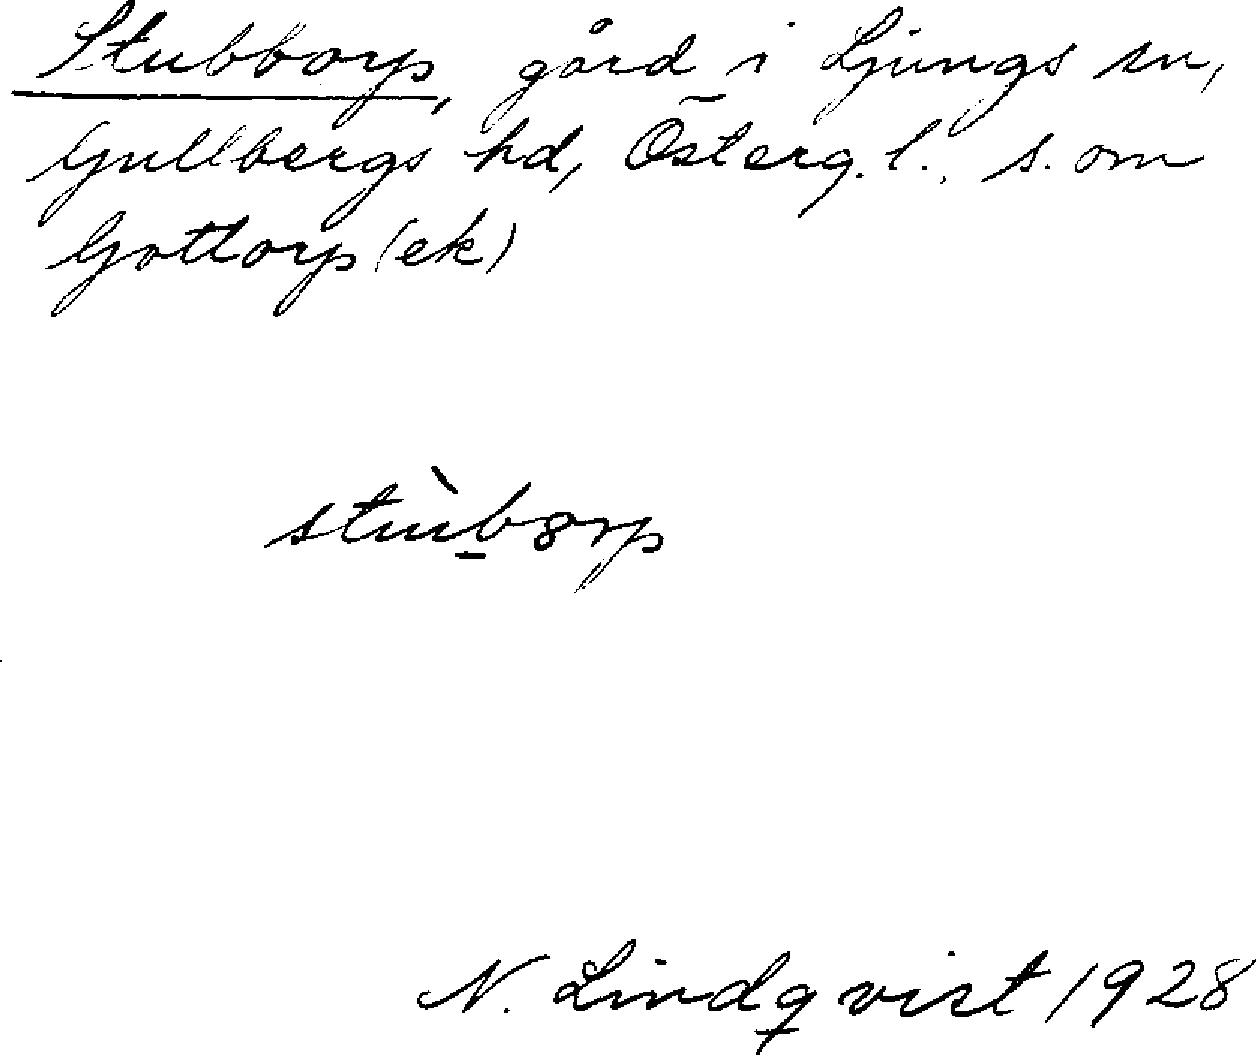 Stubborp, gård i Ljungs sn,
Gullbergs hd, Österg. l., s. om
Gottorp (ek)
stùb̲ȣrp
N. Lindqvist 1928